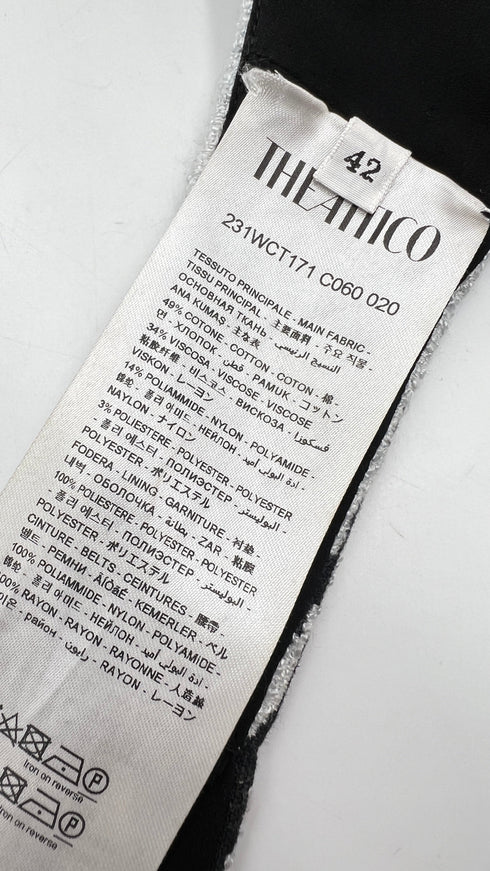 42
THE ATTICO
231WCT171 C060 020
TESSUTO PRINCIPALE - MAIN FABRIC -
TISSU PRINCIPAL - 主要面料 - 주요 직물 -
ОСНОВНАЯ ТКАНЬ - النسيج الرئيسي -
ANA KUMAŞ - 主な表
49% COTONE - COTTON - COTON - 棉 -
면 - ХЛОПОК - قطن - PAMUK - コットン
34% VISCOSA - VISCOSE - VISCOSE
粘胶纤维 - 비스코스 - ВИСКОЗА - فسكوزا -
VISKON - レーヨン
14% POLIAMMIDE - NYLON - POLYAMIDE -
锦纶 - 폴리 아미드 - НЕЙЛОН - مادة البولي أميد -
NAYLON - ナイロン
3% POLIESTERE - POLYESTER - POLYESTER
- 폴리 에스터 - ПОЛИЭСТЕР - البوليستر -
POLYESTER - ポリエステル
FODERA - LINING - GARNITURE - 衬垫 -
내벽 - ОБОЛОЧКА - بطانة - ZAR - 粘胶
100% POLIESTERE - POLYESTER - POLYESTER
- 폴리 에스터 - ПОЛИЭСТЕР - البوليستر -
POLYESTER - ポリエステル
CINTURE - BELTS - CEINTURES - 腰带 -
벨트 - РЕМНИ - KEMERLER - ベル
100% POLIAMMIDE - NYLON - POLYAMIDE -
锦纶 - 폴리 아미드 - НЕЙЛОН - مادة البولي أميد -
NAYLON - ナイロン
100% RAYON - RAYON - RAYONNE - 人造絲
이온 - район - رايون - RAYON - レーヨン
Iron on reverse
Iron on reverse